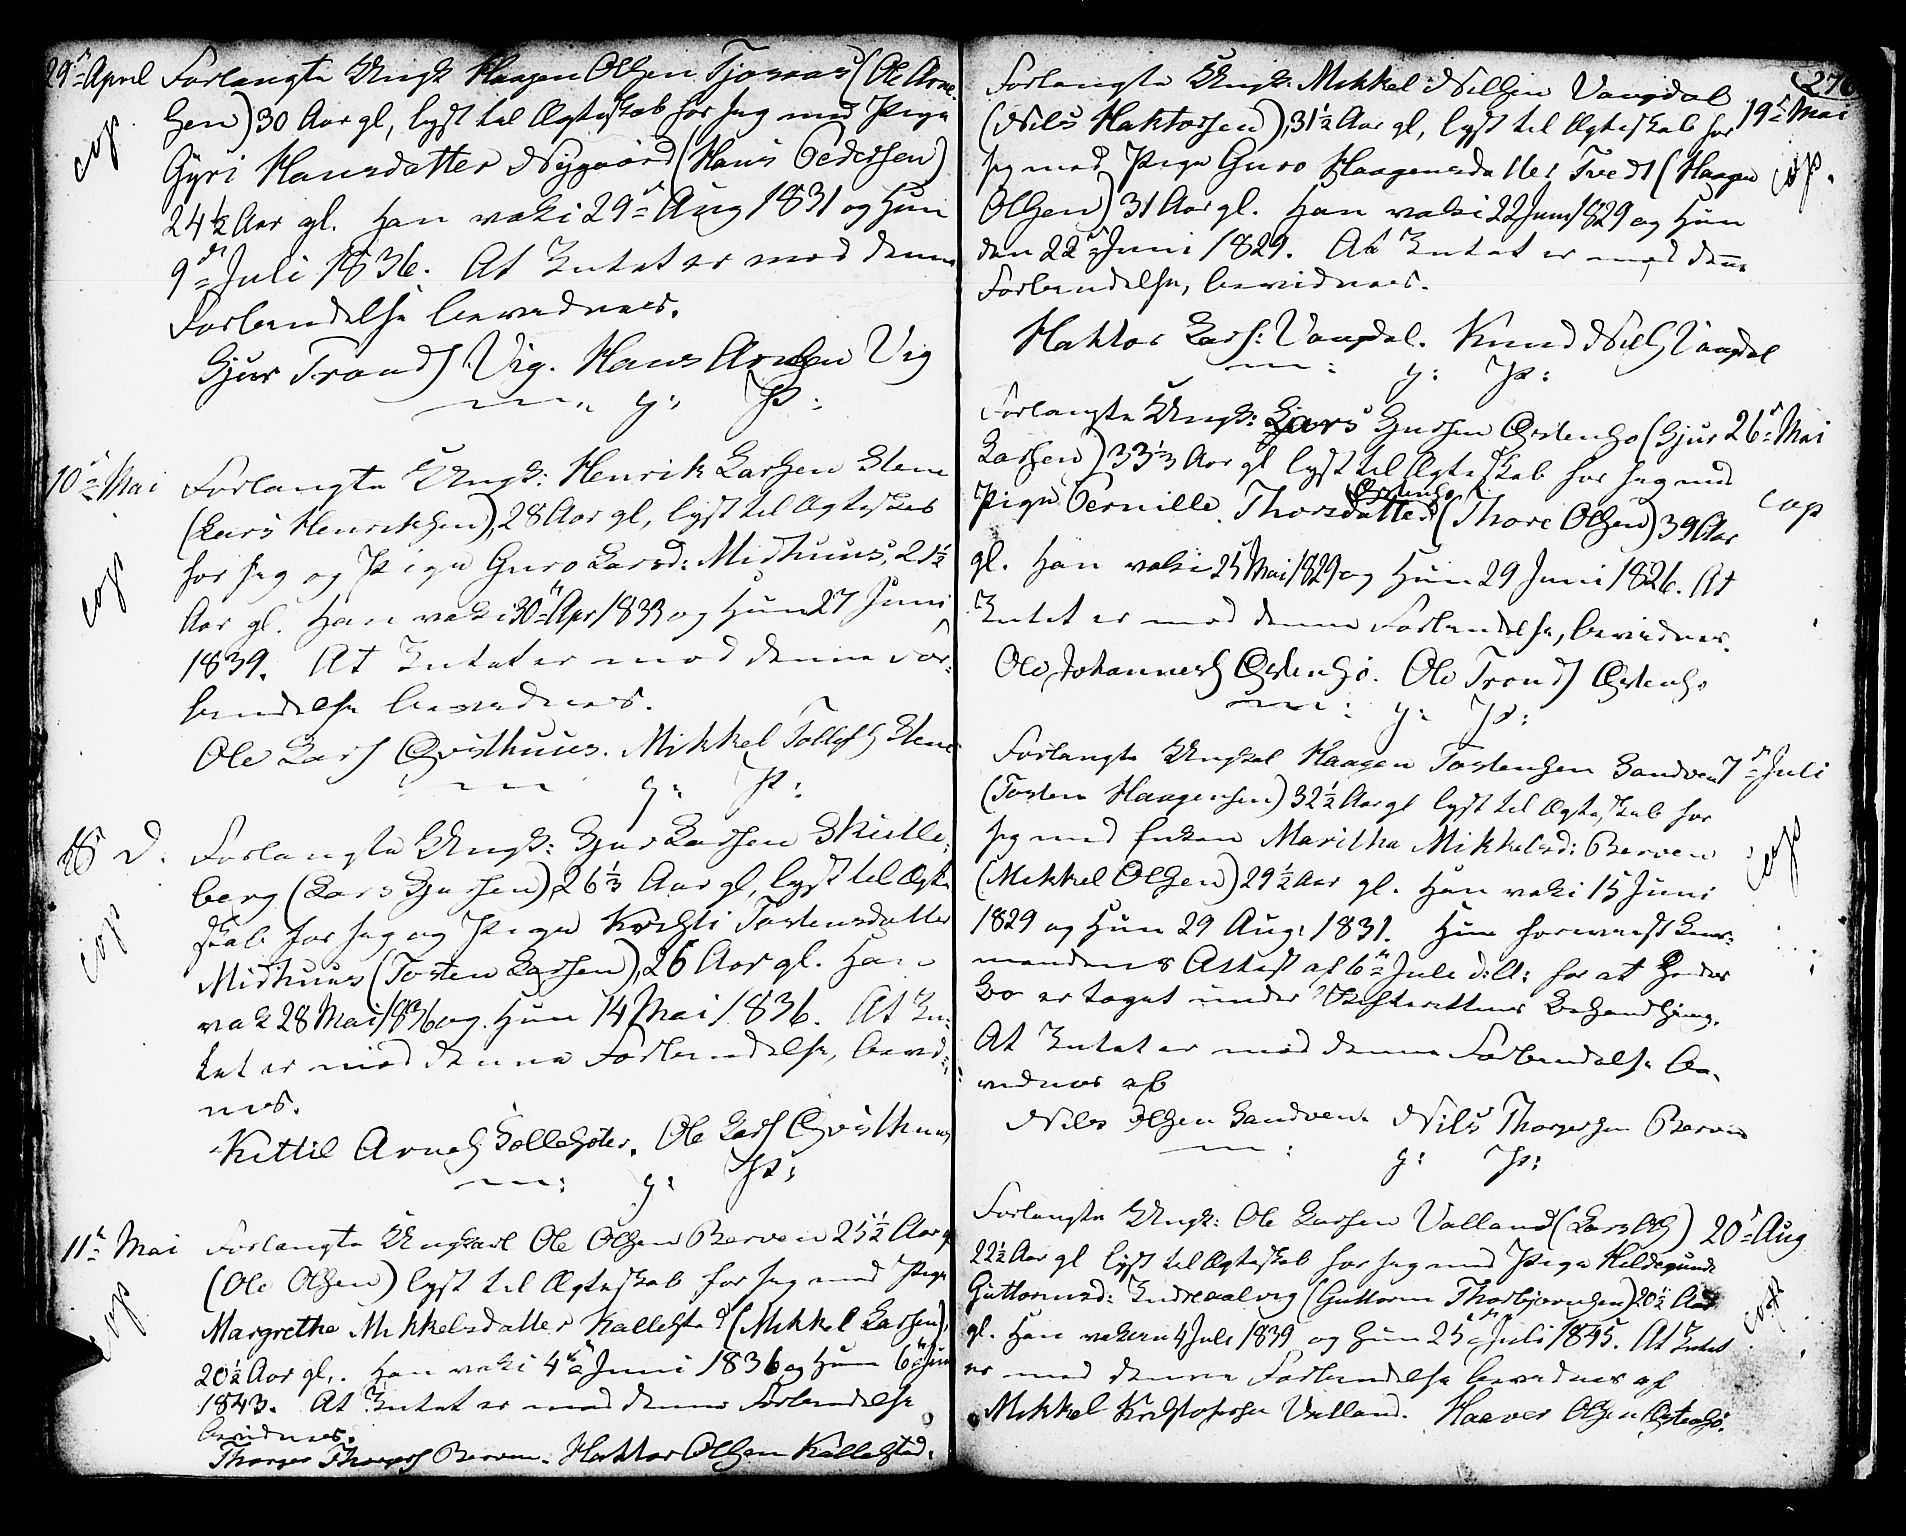 29de April Forlangte Ungk Haagen Olsen Tjoraas (Ole Arne-
sen) 30 Aar gl, lyst til Ægteskab for sig med Pige
cop.
Gyri Hansdatter Nygaard (Hans Pedersen)
24½ Aar gl. Han vak: i 29de Aug 1831 og Hun
9de Juli 1836. At Intet er mod denne
Forbindelse bevidnes.
Gjur Trondss Vig. Hans Arnesen Vig
m: y: P:
10de Mai Forlangte Ungk: Henrik Larsen Steine
(Lars Henriksen), 28 Aar gl, lyst til Ægteskab
cop
for sig og Pige Guro Larsd: Midhuus, 21½
Aar gl. Han vak: i 30te Apr 1833 og Hun 27 Juni
1839. At Intet er mod denne For-
bindelse bevidnes.
Ole Larss Qvisthuus. Mikkel Tollefss Steine
m y: P:
D. Forlangte Ungk: Gjur Larsen Skutle-
berg (Lars Gjursen), 26⅓ Aar gl, lyst til Ægte-
cop
skab for sig og Pige Kristi Torstensdatter
Midhuus (Torsten Larsen), 26 Aar gl. Han
vak 28 Mai 1836 og Hun 14 Mai 1836. At In-
tet er mod denne Forbindelse, bevid-
nes.
Kittil Arness Sollesæter. Ole Larss Qvisthuus
m: y: P:
11te Mai Forlangte Ungkarl Ole Olsen Berven 25½ Aar gl
(Ole Olsen) lyst til Ægteskab for sig med Pige
cop
Margrethe Mikkelsdatter Kallestad (Mikkel Larsen),
20½ Aar gl,. Han vak: i 4de Juni 1836 og Hun 6te Juni
1843. At Intet er mod denne Forbindelse
bevidnes.
Thorger Thorgss Berven. Haktor Olsen Kallestad.
276
Forlangte Ungk: Mikkel Nilsen Vangdal
(Nils Haktorsen), 31½ Aar gl, lyst til Ægteskab for 19de Mai
sig med Pige Guro Haagensdatter Tvedt (Haagen
cop.
Olsen) 31 Aar gl. Han vak: i 22 Juni 1829 og Hun
den 22de Juni 1829. At Intet er mod denne
Forbindelse, bevidnes.
Haktor Larss: Vangdal. Knud Nilss Vangdal
m: y: P:
Forlangte Ungk: Lars Gjursen Østensø (Gjur 26de Mai
Larsen) 33⅓ Aar gl lyst til Ægteskab for sig med
Østensø
Pige Pernille Thorsdatter (Thore Olsen) 39 Aar
cop
gl. Han vak: i 25 Mai 1829 og Hun 29 Juni 1826. At
Intet er mod denne Forbindelse, bevidnes.
Ole Johanness Østensø. Ole Trondss Østensø
m: y: P:
Forlangte Ungkal Haagen Torstensen Sandven 7de Juli
(Torsten Haagensen) 32½ Aar gl lyst til Ægteskab for
sig med Enken Maritha Mikkelsd: Berven
cop
(Mikkel Olsen) 29½ Aar gl. Han vak: i 15 Juni
1829 og Hun 29 Aug: 1831. Hun foreviist Lens-
mandens Attest af 6te Juli d: A: for at hendes
Bo er taget under Skifterettens Behandling.
At Intet er mod denne Forbindelse be-
vidnes af
Nils Olsen Sandven. Nils Thorgersen Berven
m: y: P:
Forlangte Ungk: Ole Larsen Valland (Lars Olss) 20de Aug
22½ Aar gl lyst til Ægteskab for sig med Pige Hildegunde
Guttormsd: Indreaalvig (Guttorm Thorbjørnsen) 20½ Aar
cop.
gl. Han vakcin 4 Juli 1839 og Hun 25de Juli 1845. At Intet
er mod denne Forbindelse bevidnes af
Mikkel Kristofersen Valland. Haaver Olsen Østensø.